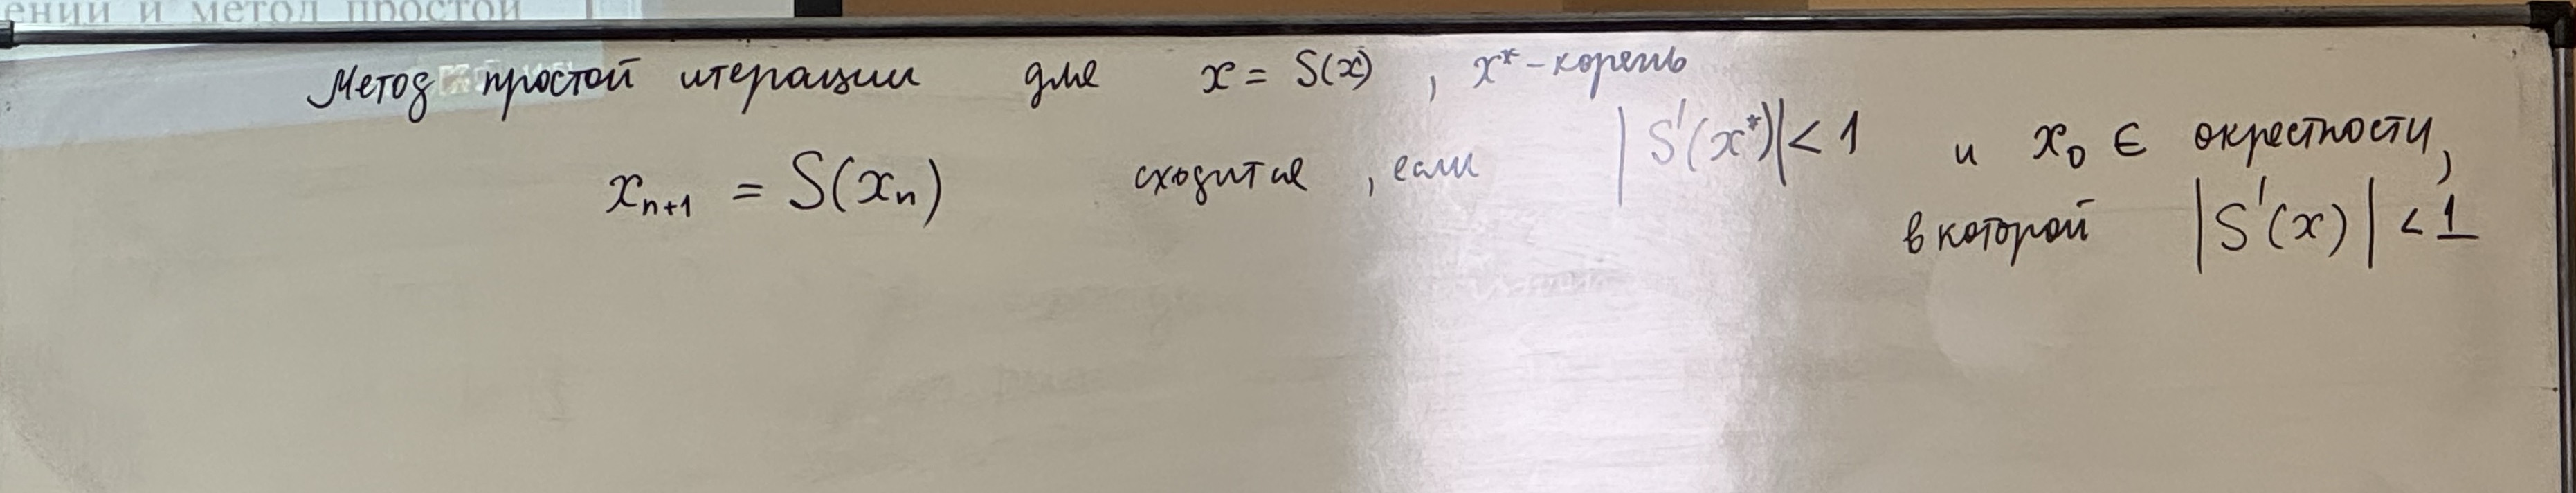 ении и метод простой
Метод простой итерации для x = S(x) , x* - корень
x_{n+1} = S(x_n) сходится , если |S'(x*)| < 1 и x_0 ∈ окрестности,
в которой |S'(x)| < 1